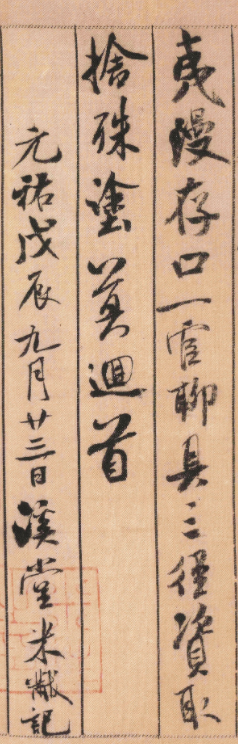 夷漫存口一官聊具三徑資取
捨殊塗莫迴首
元祐戊辰九月廿三日溪堂米黻記